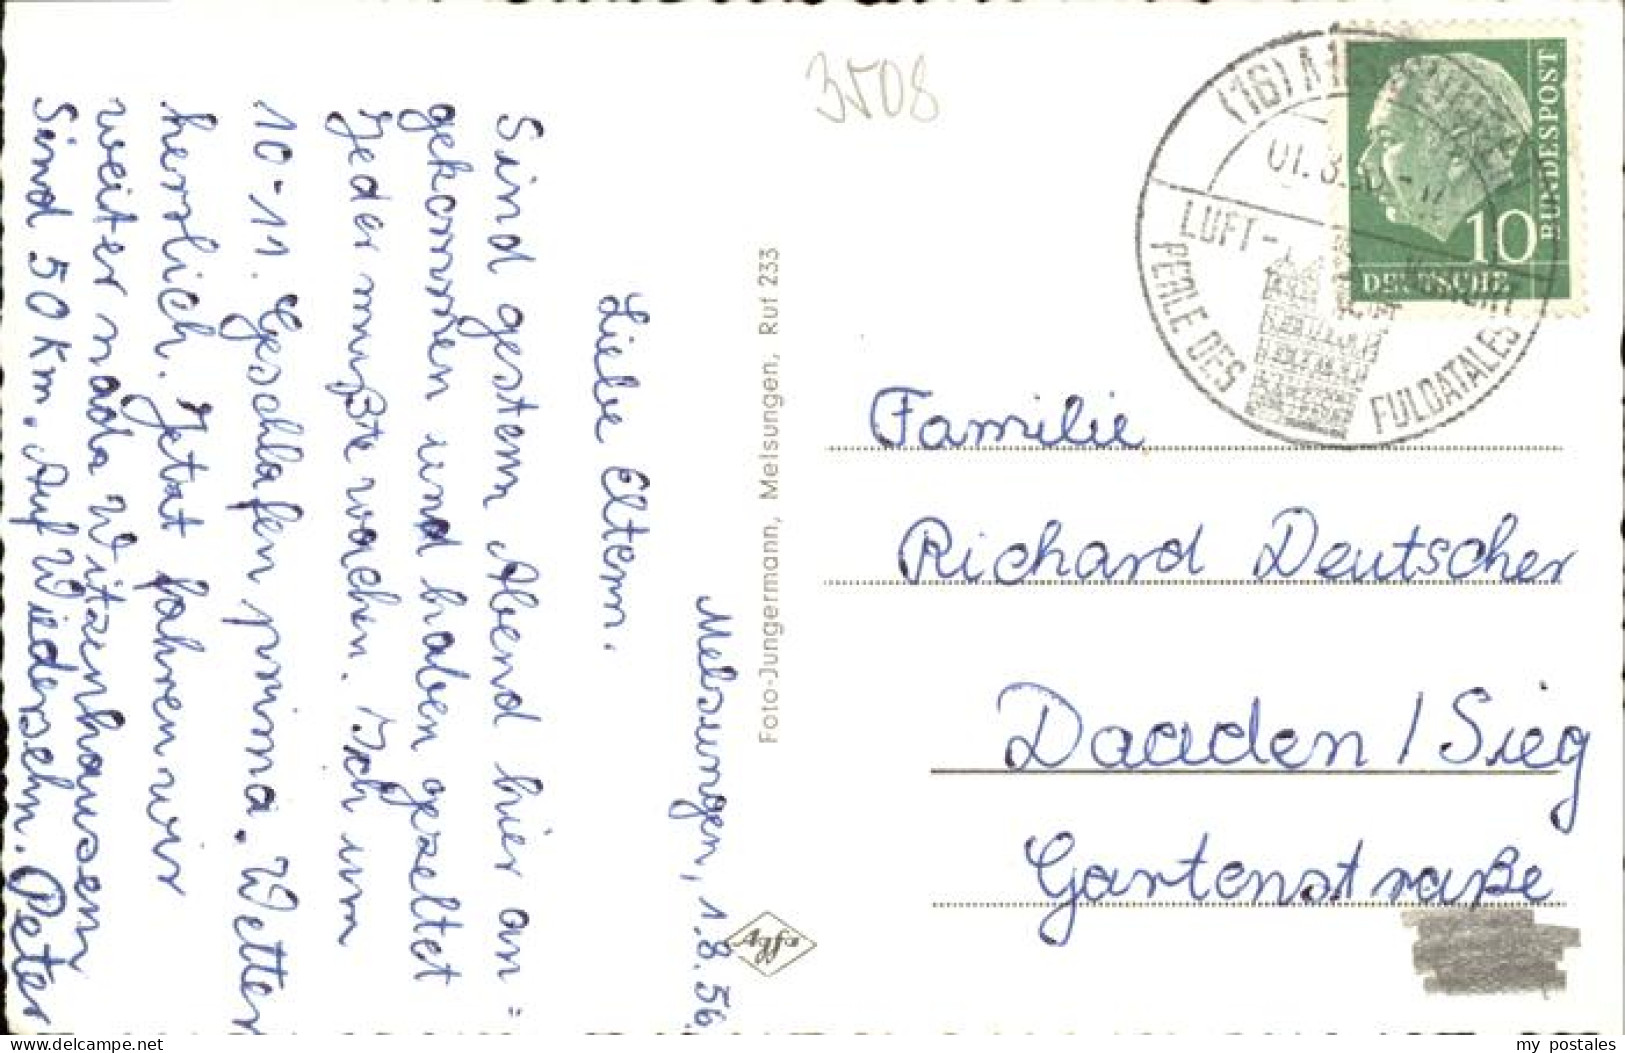 Melsungen, 1.8.56
Liebe Eltern.
Sind gestern Abend hier an=
gekommen und haben gezeltet
Jeder mußte wachen. Ich um
10-11. Geschlafen prima. Wetter
herrlich. Jetzt fahren wir
weiter nach Witzenhausen
Sind 50 Km. Auf Wiedersehn. Peter
Foto-Jungermann, Melsungen, Ruf 233
Agfa
3508
(16)
01.8.
LUFT-
PERLE DES FULDATALES
BUNDESPOST
10
DEUTSCHE
Familie
Richard Deutscher
Daaden / Sieg
Gartenstraße
my postales